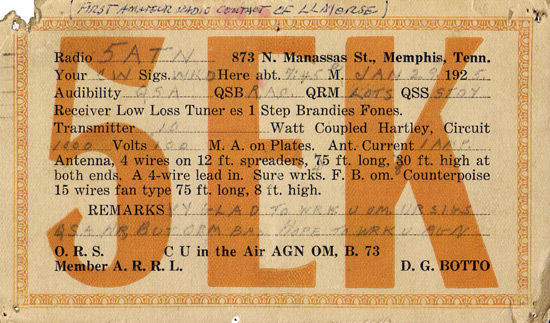 (FIRST AMATEUR RADIO CONTACT OF LLMORSE)
5EK
Radio 5ATN 873 N. Manassas St., Memphis, Tenn.
Your CW Sigs. WKD Here abt. 7:45 M. JAN 29 1925.
Audibility QSA QSB RAC QRM LOTS QSS STDY
Receiver Low Loss Tuner es 1 Step Brandies Fones.
Transmitter 10 Watt Coupled Hartley, Circuit
1000 Volts 100 M. A. on Plates. Ant. Current 1 AMP
Antenna, 4 wires on 12 ft. spreaders, 75 ft. long, 30 ft. high at
both ends. A 4-wire lead in. Sure wrks. F. B. om. Counterpoise
15 wires fan type 75 ft. long, 8 ft. high.
REMARKS GLAD TO WRK U OM UR SIGS
QSA HR BUT OM HOPE TO WRK U AGN
O. R. S. C U in the Air AGN OM, B. 73
Member A. R. R. L. D. G. BOTTO